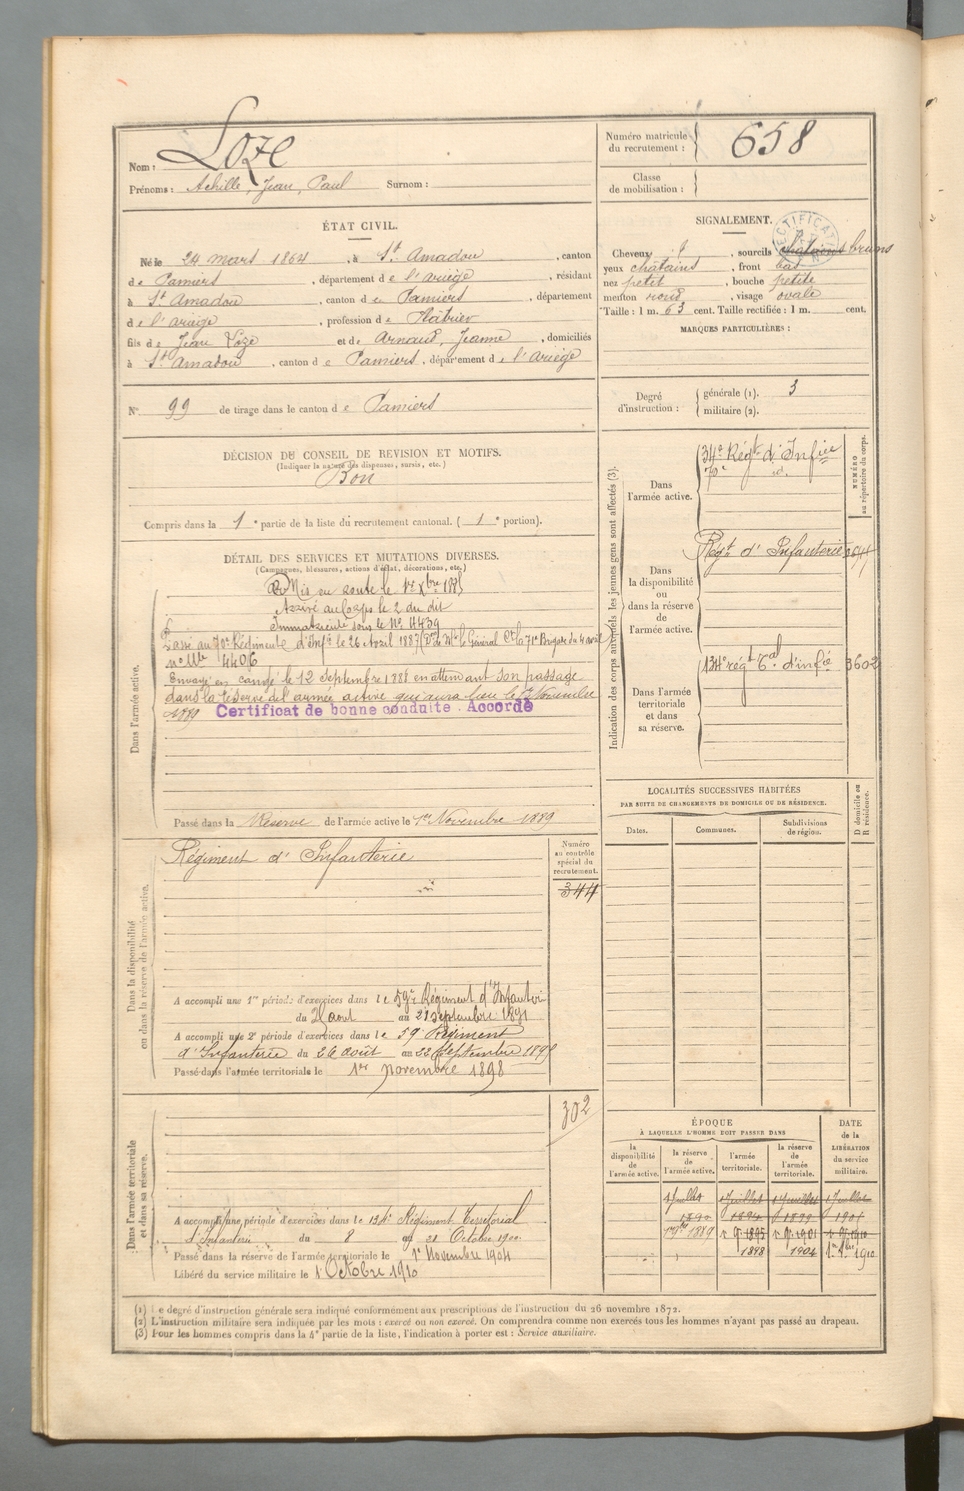 Nom : Loze
Prénoms : Achille, Jean, Paul Surnom :
Numéro matricule du recrutement : 658
Classe de mobilisation :
ÉTAT CIVIL.
Né le 24 mars 1864, à St Amadou, canton
de Pamiers, département de l'ariège, résidant
à St Amadou, canton de Pamiers, département
de l'ariège, profession de Plâtrier
fils de Jean Loze et de Arnaud, Jeanne, domiciliés
à St Amadou, canton de Pamiers, département de l'ariège
SIGNALEMENT.
RECTIFICATION
Cheveux, sourcils chatains bruns
yeux châtains, front bas
nez petit, bouche petite
menton rond, visage ovale
Taille : 1 m. 63 cent. Taille rectifiée : 1 m. cent.
MARQUES PARTICULIÈRES :
N° 99 de tirage dans le canton de Pamiers
Degré d'instruction : générale (1). 3
militaire (2).
DÉCISION DU CONSEIL DE REVISION ET MOTIFS.
(Indiquer la nature des dispenses, sursis, etc.)
Bon
Compris dans la 1e partie de la liste du recrutement cantonal. (1e portion).
DÉTAIL DES SERVICES ET MUTATIONS DIVERSES.
(Campagnes, blessures, actions d'éclat, décorations, etc.)
Dans l'armée active.
Mis en route le 1er Xbre 1885
Arrivé au Corps le 2 du dit
Immatriculé sous le No 4439
Passé au 70e Régiment d'Infie le 26 Avril 1887 Mr le Général Ct la 71e Brigade du 4 avril
no Mle 4406
Envoyé en congé le 12 septembre 1888 en attendant son passage
dans la réserve de l'armée active qui aura lieu le 1er Novembre
1889 Certificat de bonne conduite : Accordé
Passé dans la Réserve de l'armée active le 1er Novembre 1889
Indication des corps auxquels les jeunes gens sont affectés (3).
NUMÉRO au répertoire du corps.
Dans l'armée active.
34e Régt d'Infie
70e id.
Dans la disponibilité ou dans la réserve de l'armée active.
Régt d'Infanterie
Dans l'armée territoriale et dans sa réserve.
134e régt Tal d'infie 3602
LOCALITÉS SUCCESSIVES HABITÉES
PAR SUITE DE CHANGEMENTS DE DOMICILE OU DE RÉSIDENCE.
Dates. Communes. Subdivisions de région.
D domicile ou R résidence.
Dans la disponibilité ou dans la réserve de l'armée active.
Numéro au contrôle spécial du recrutement.
Régiment d'Infanterie
344
A accompli une 1re période d'exercices dans le 59e Régiment d'Infanterie
du août au 21 septembre 1891
A accompli une 2e période d'exercices dans le 59e Régiment
d'Infanterie du 26 août au 22 septembre 1895
Passé dans l'armée territoriale le 1er novembre 1898
Dans l'armée territoriale et dans sa réserve.
302
A accompli une période d'exercices dans le 134e Régiment Territorial
d'Infanterie du 8 au 21 Octobre 1900
Passé dans la réserve de l'armée territoriale le 1er Novembre 1904
Libéré du service militaire le 1er Octobre 1910
ÉPOQUE
À LAQUELLE L'HOMME DOIT PASSER DANS
DATE de la LIBÉRATION du service militaire.
la disponibilité de l'armée active. la réserve de l'armée active. l'armée territoriale. la réserve de l'armée territoriale.
1 Juillet 1 Juillet 1 Juillet 1 Juillet
1890 1894 1899 1904
1889 1895 1901 1910
1898 1904 1910
(1) Le degré d'instruction générale sera indiqué conformément aux prescriptions de l'instruction du 26 novembre 1872.
(2) L'instruction militaire sera indiquée par les mots : exercé ou non exercé. On comprendra comme non exercés tous les hommes n'ayant pas passé au drapeau.
(3) Pour les hommes compris dans la 4e partie de la liste, l'indication à porter est : Service auxiliaire.